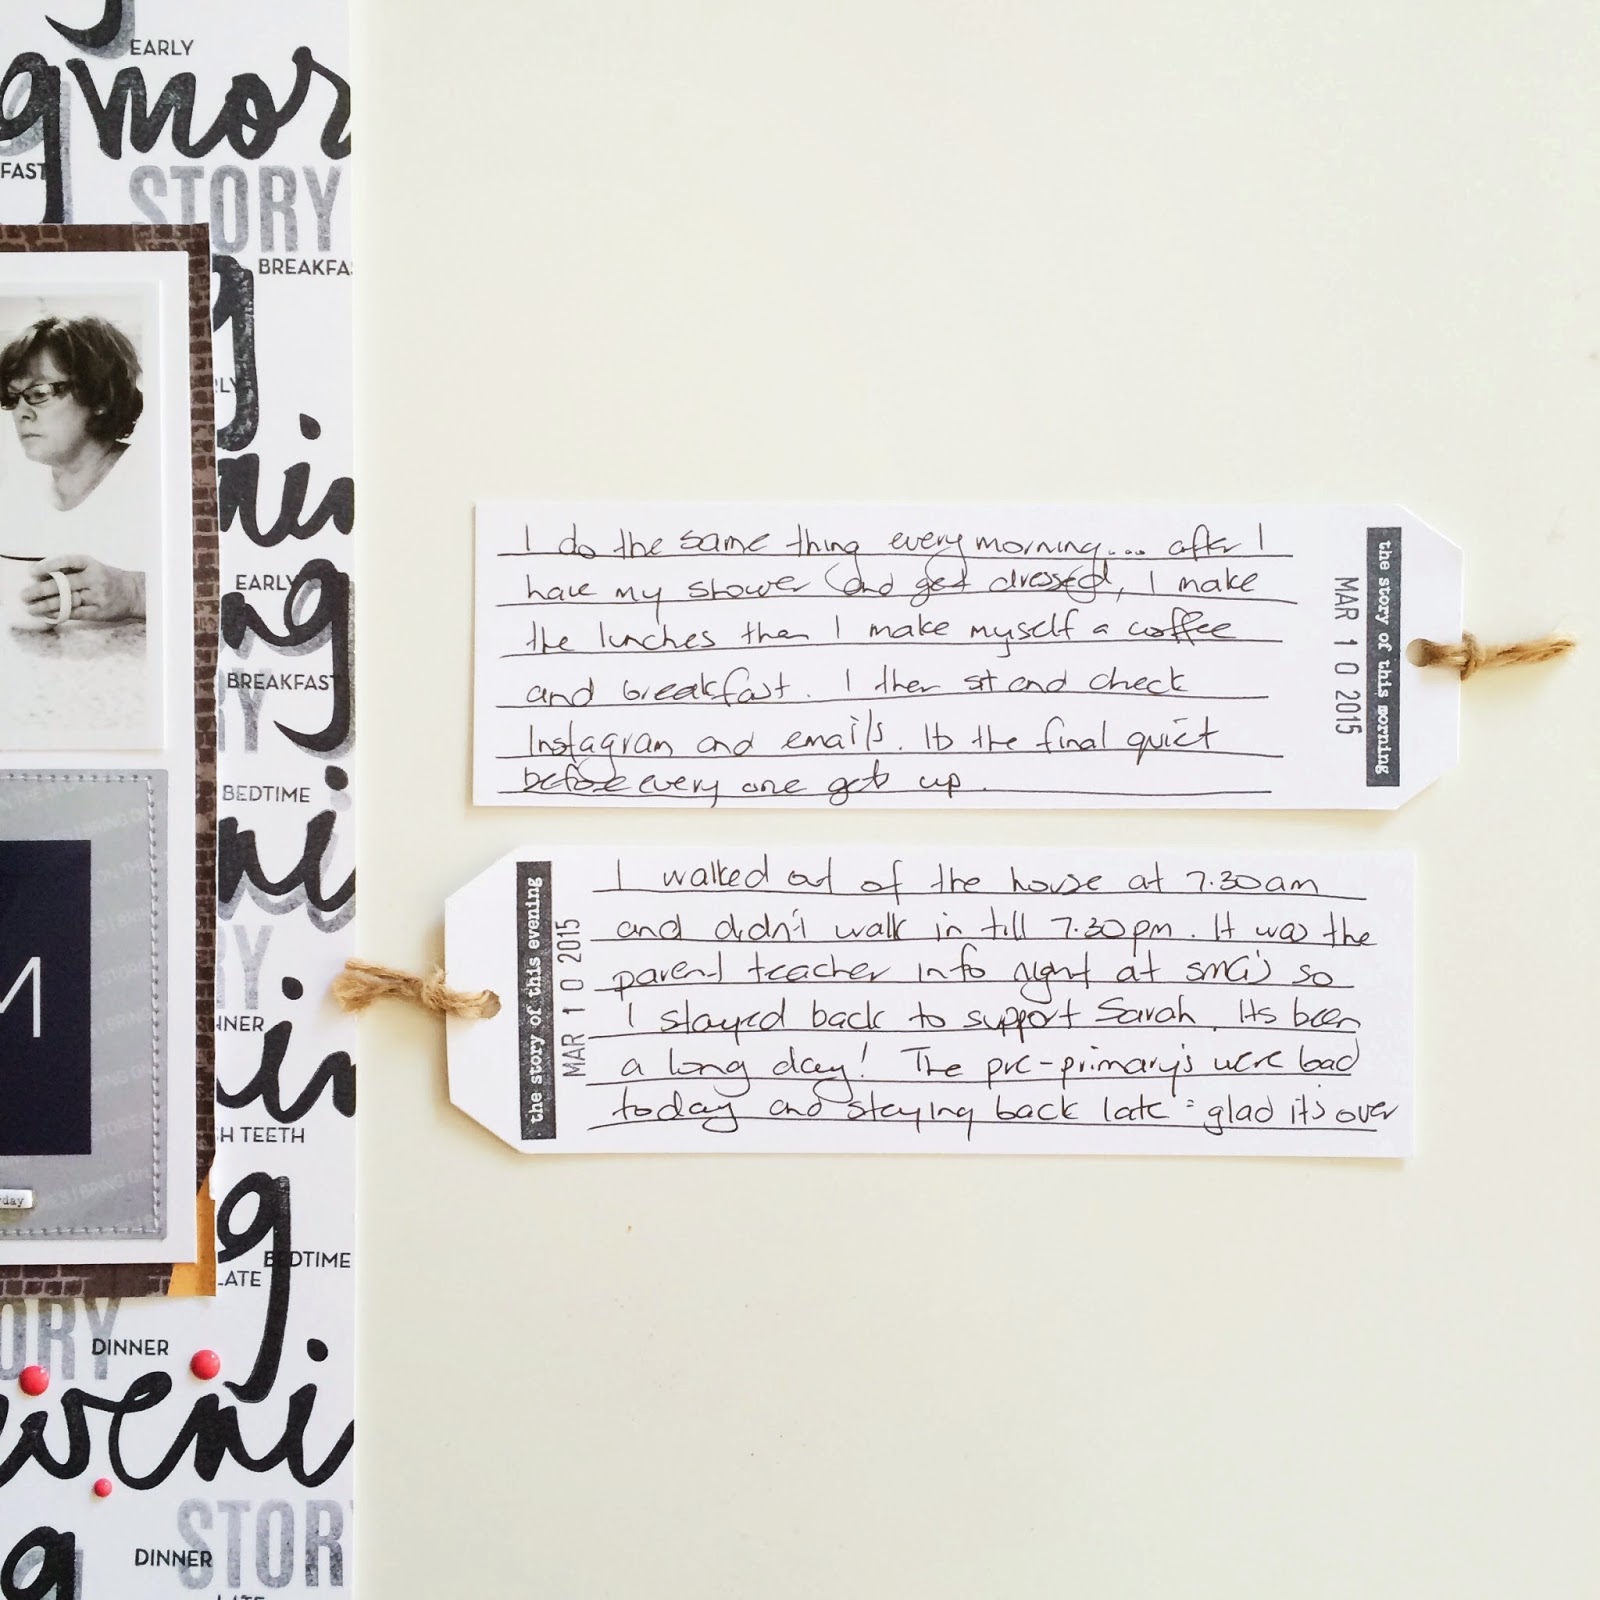 EARLY
g mor
FAST
STORY
BREAKFA
g
RLY
nin
EARLY
ng
BREAKFAST
RY
BEDTIME
ni
RY
NNER
in
H TEETH
M
rday
g
BEDTIME
LATE
ORY
DINNER
eveni
STOR
DINNER
g
LATE
I do the same thing every morning.... after I
have my shower (and get dressed), I make
the lunches then I make myself a coffee
and breakfast. I then sit and check
Instagram and emails. Its the final quiet
before every one gets up.
the story of this morning
MAR 10 2015
the story of this evening
MAR 10 2015
I walked out of the house at 7.30am
and didn't walk in till 7.30pm. It was the
parent teacher info night at SMG's so
I stayed back to support Sarah. Its been
a long day! The pre-primary's were bad
today and staying back late = glad it's over